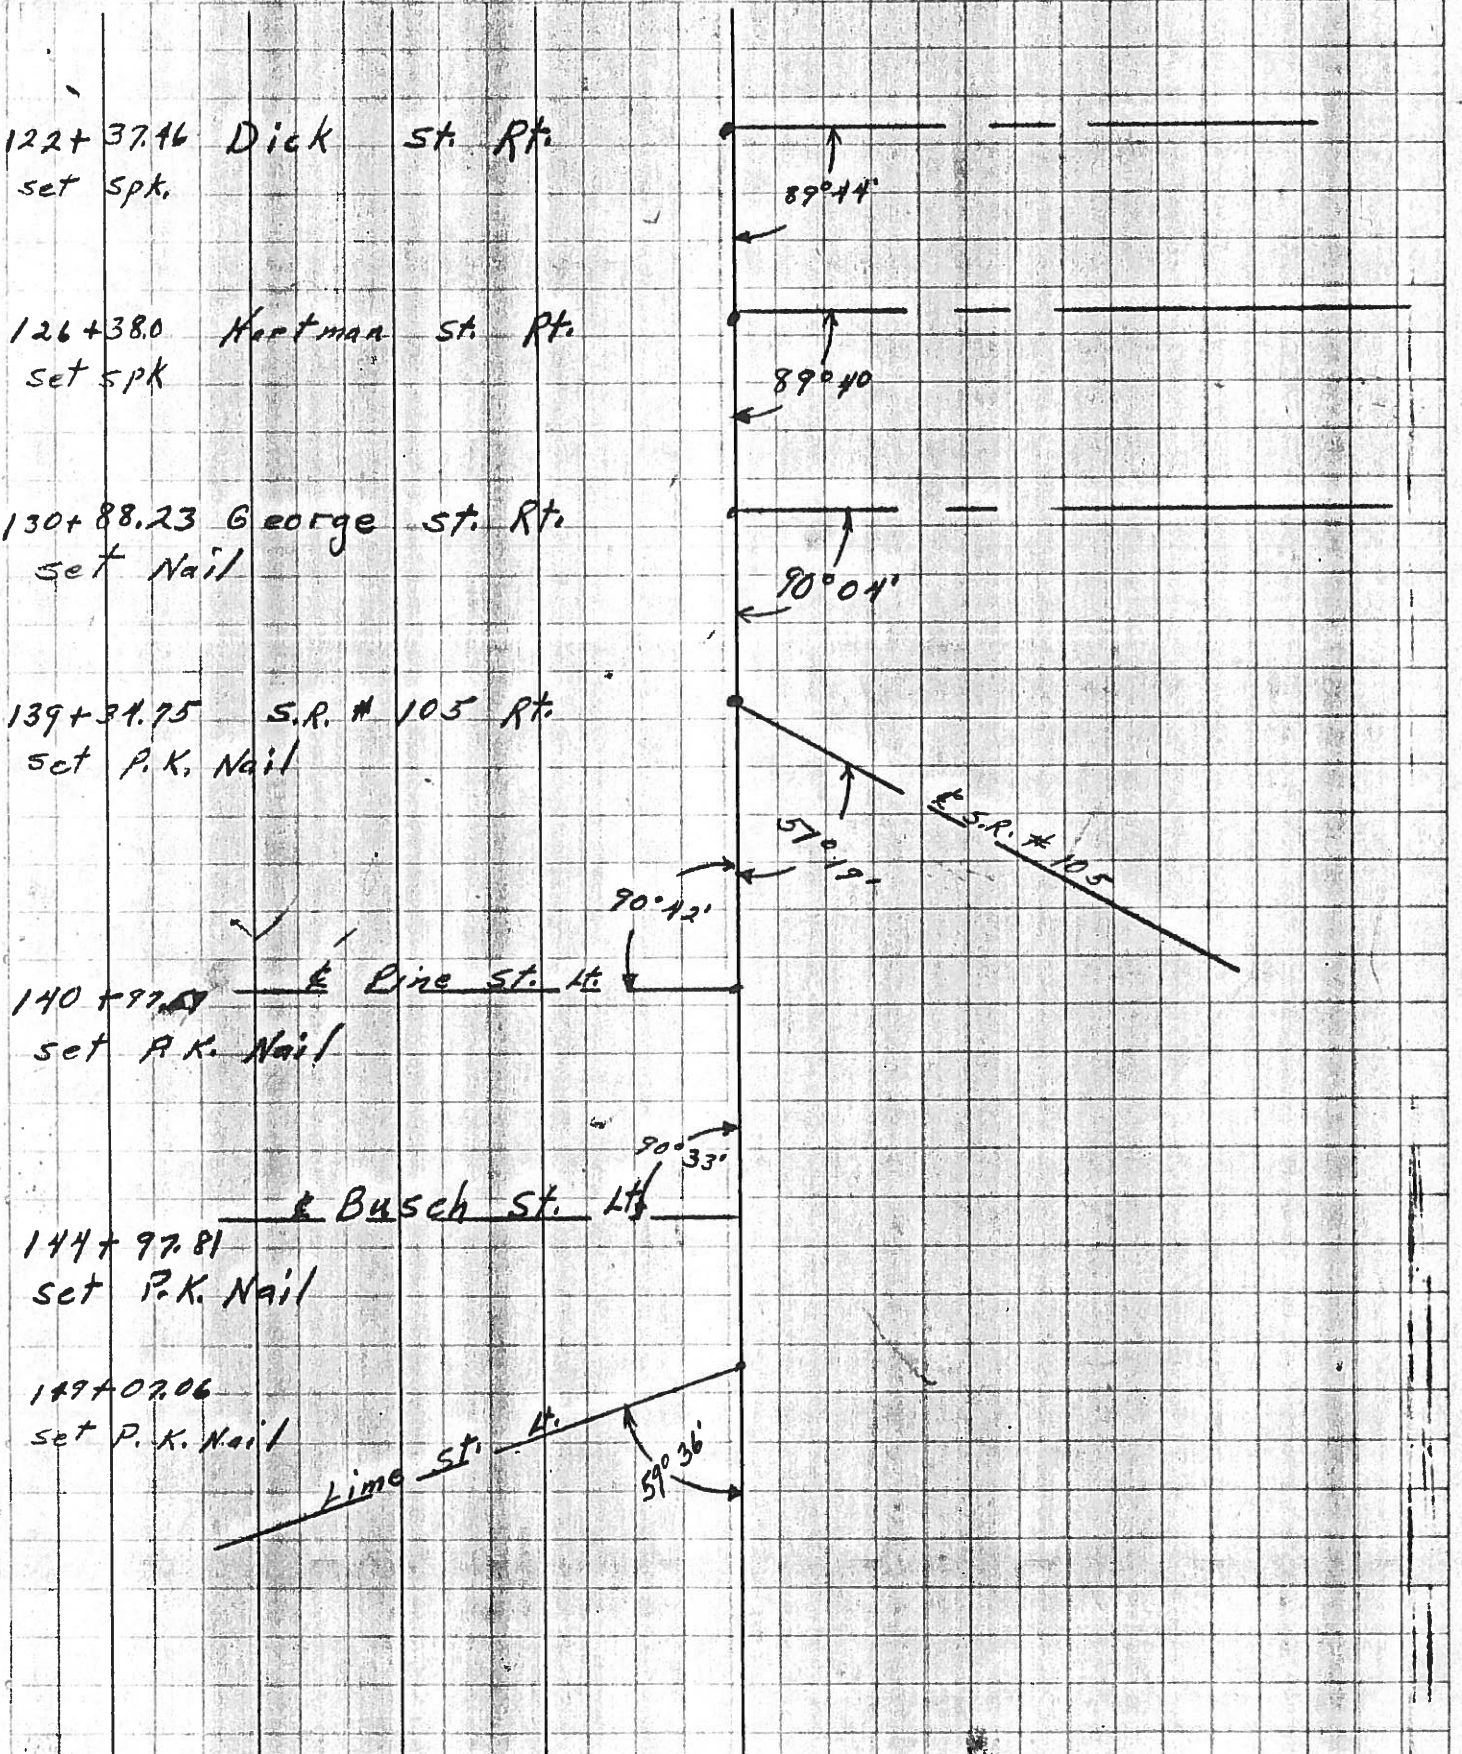 122+37.46 Dick St. Rt.
set Spk.
89°44'
126+38.0 Hartman St. Rt.
set spk
89°40
130+88.23 George St. Rt.
set Nail
90°04'
139+34.75 S.R. # 105 Rt.
set P.K. Nail
57°19'
℄ S.R. # 105
90°42'
℄ Pine St. Lt.
140+97.
set P.K. Nail
90°33'
℄ Busch St. Lt.
144+97.81
set P.K. Nail
149+07.06
set P.K. Nail
Lime St. Lt.
59°36'